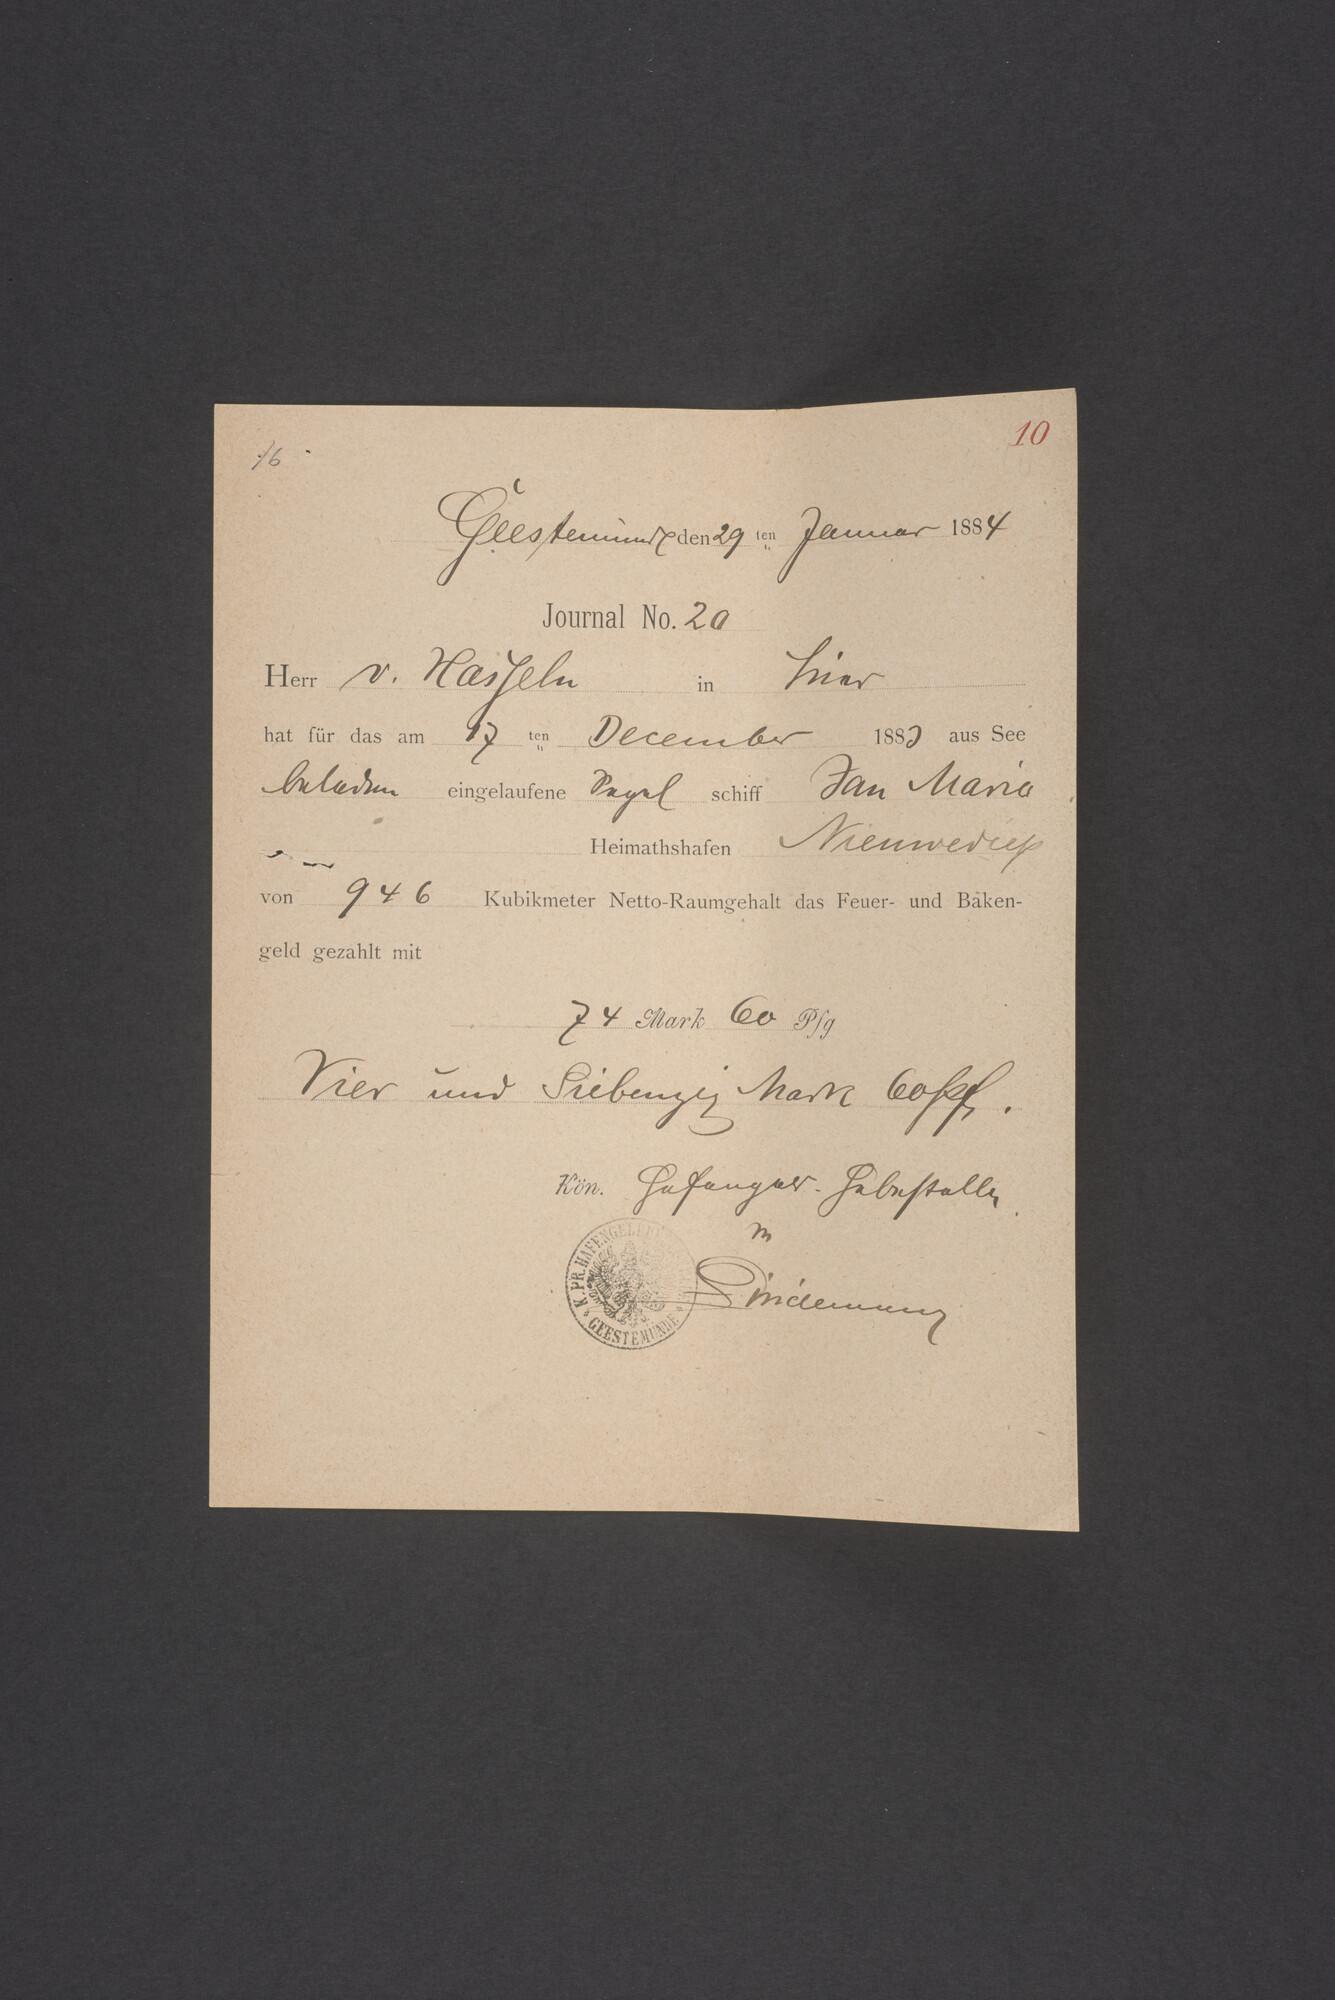 10
16
Geestemünde den 29 ten Januar 1884
Journal No. 20
Herr v. Hasseln in hier
hat für das am 17 ten December 1883 aus See
beladen eingelaufene Segel schiff Jan Maria
Heimathshafen Nieuwediep
von 946 Kubikmeter Netto-Raumgehalt das Feuer- und Baken-
geld gezahlt mit
74 Mark 60 Pfg
Vier und Siebenzig Mark 60 Pf.
Kön. Hafengeld-Hebestelle
K. PR. HAFENGELD
GEESTEMÜNDE
Lindemann